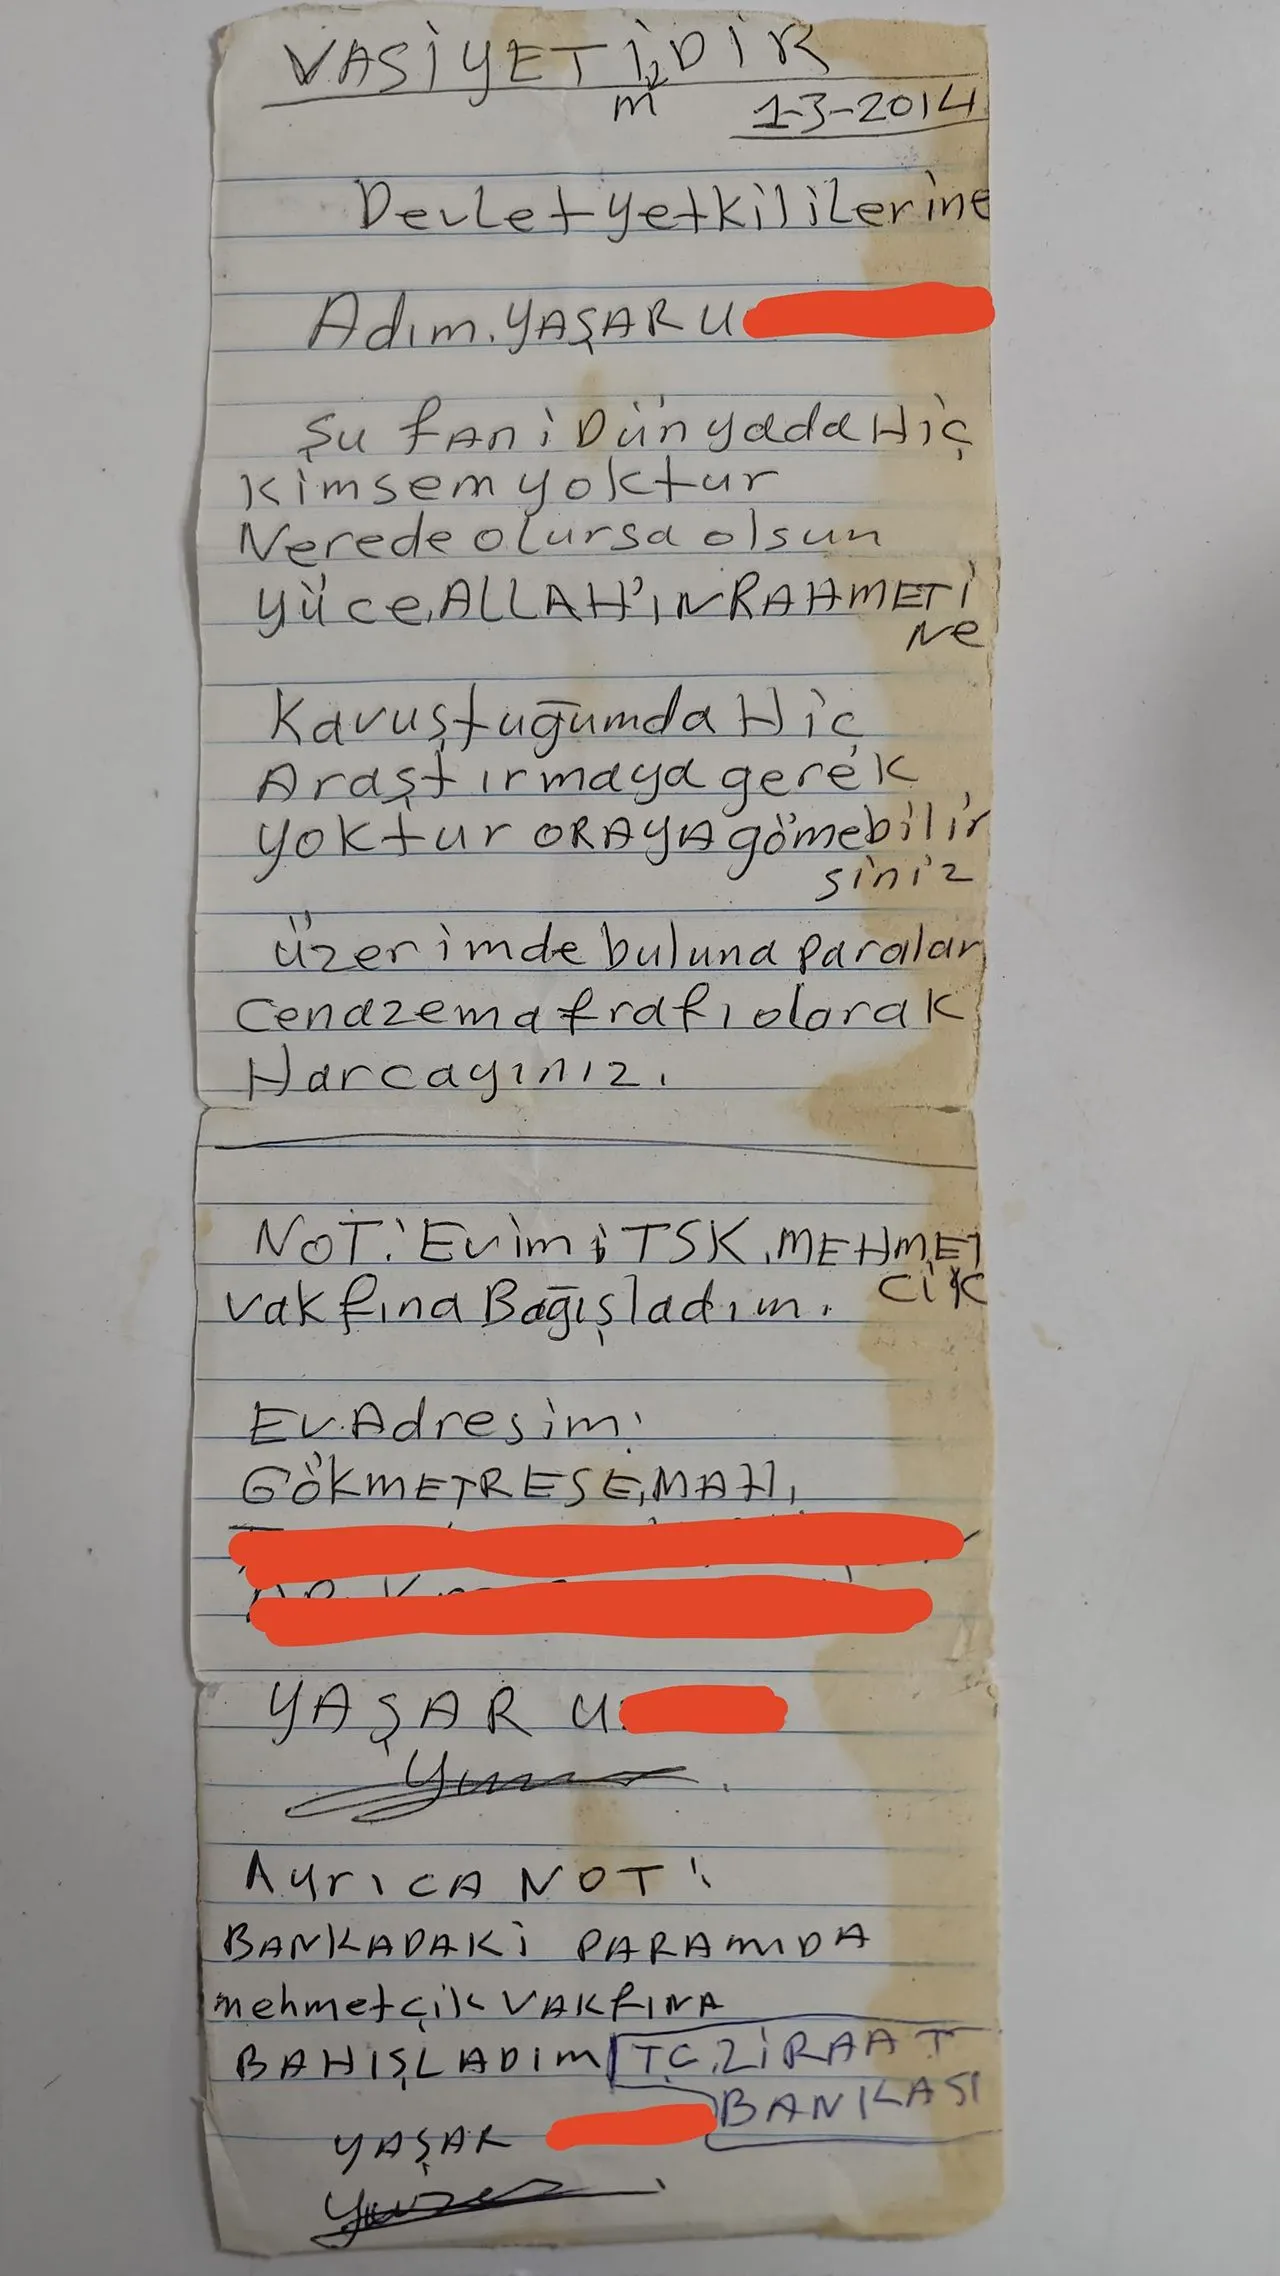 VASİYETİMDİR
1-3-2014
Devlet yetkililerine
Adım. YAŞAR U
Şu fani Dünyada Hiç
Kimsem yoktur
Nerede olursa olsun
yüce, ALLAH'IN RAHMETİ
Ne
Kavuştuğumda Hiç
Araştırmaya gerek
yoktur ORAYA gömebilir
siniz
üzerimde buluna paralar
Cenaze mafrafı olarak
Harcayınız.
NOT: Evimi TSK. MEHMET
CİK
vakfına Bağışladım.
Ev. Adresim:
GÖKMETRESE, MAH,
YAŞAR U
Ayrıca NOT:
BANKADAKİ PARAMIDA
mehmetçik VAKFINA
BAHIŞLADIM T.C. ZİRAAT
BANKASI
YAŞAR